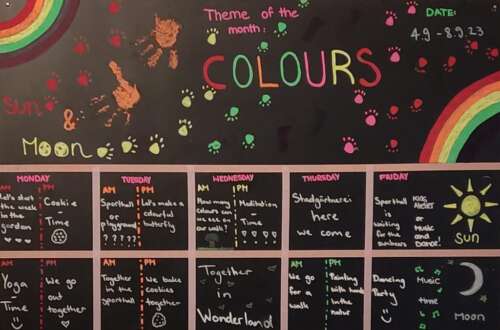 Theme of the
month:
DATE:
4.9 - 8.9.23
COLOURS
Sun
&
Moon
MONDAY
TUESDAY
WEDNESDAY
THURSDAY
FRIDAY
AM PM
Let's start
the week
in the
garden
Cookie
Time
AM PM
Sporthall
or
playground
??????
Let's make a
colourful
butterfly
AM PM
How many
colours can
we see on
our walk?
Meditation
-
Time
Stadgärtnerei
here
we come
Sporthall
is
waiting
for the
sunbears
KIDS
Atelier
or
Music
and
Dance!
Sun
Yoga
-
Time
We go
out
together
AM PM
Together
in the
sporthall
We bake
cookies
together
Together
in
Wonderland
AM PM
We go
for a
walk
Painting
with hands
in the
natur
Dancing
Party
Music
time
Moon